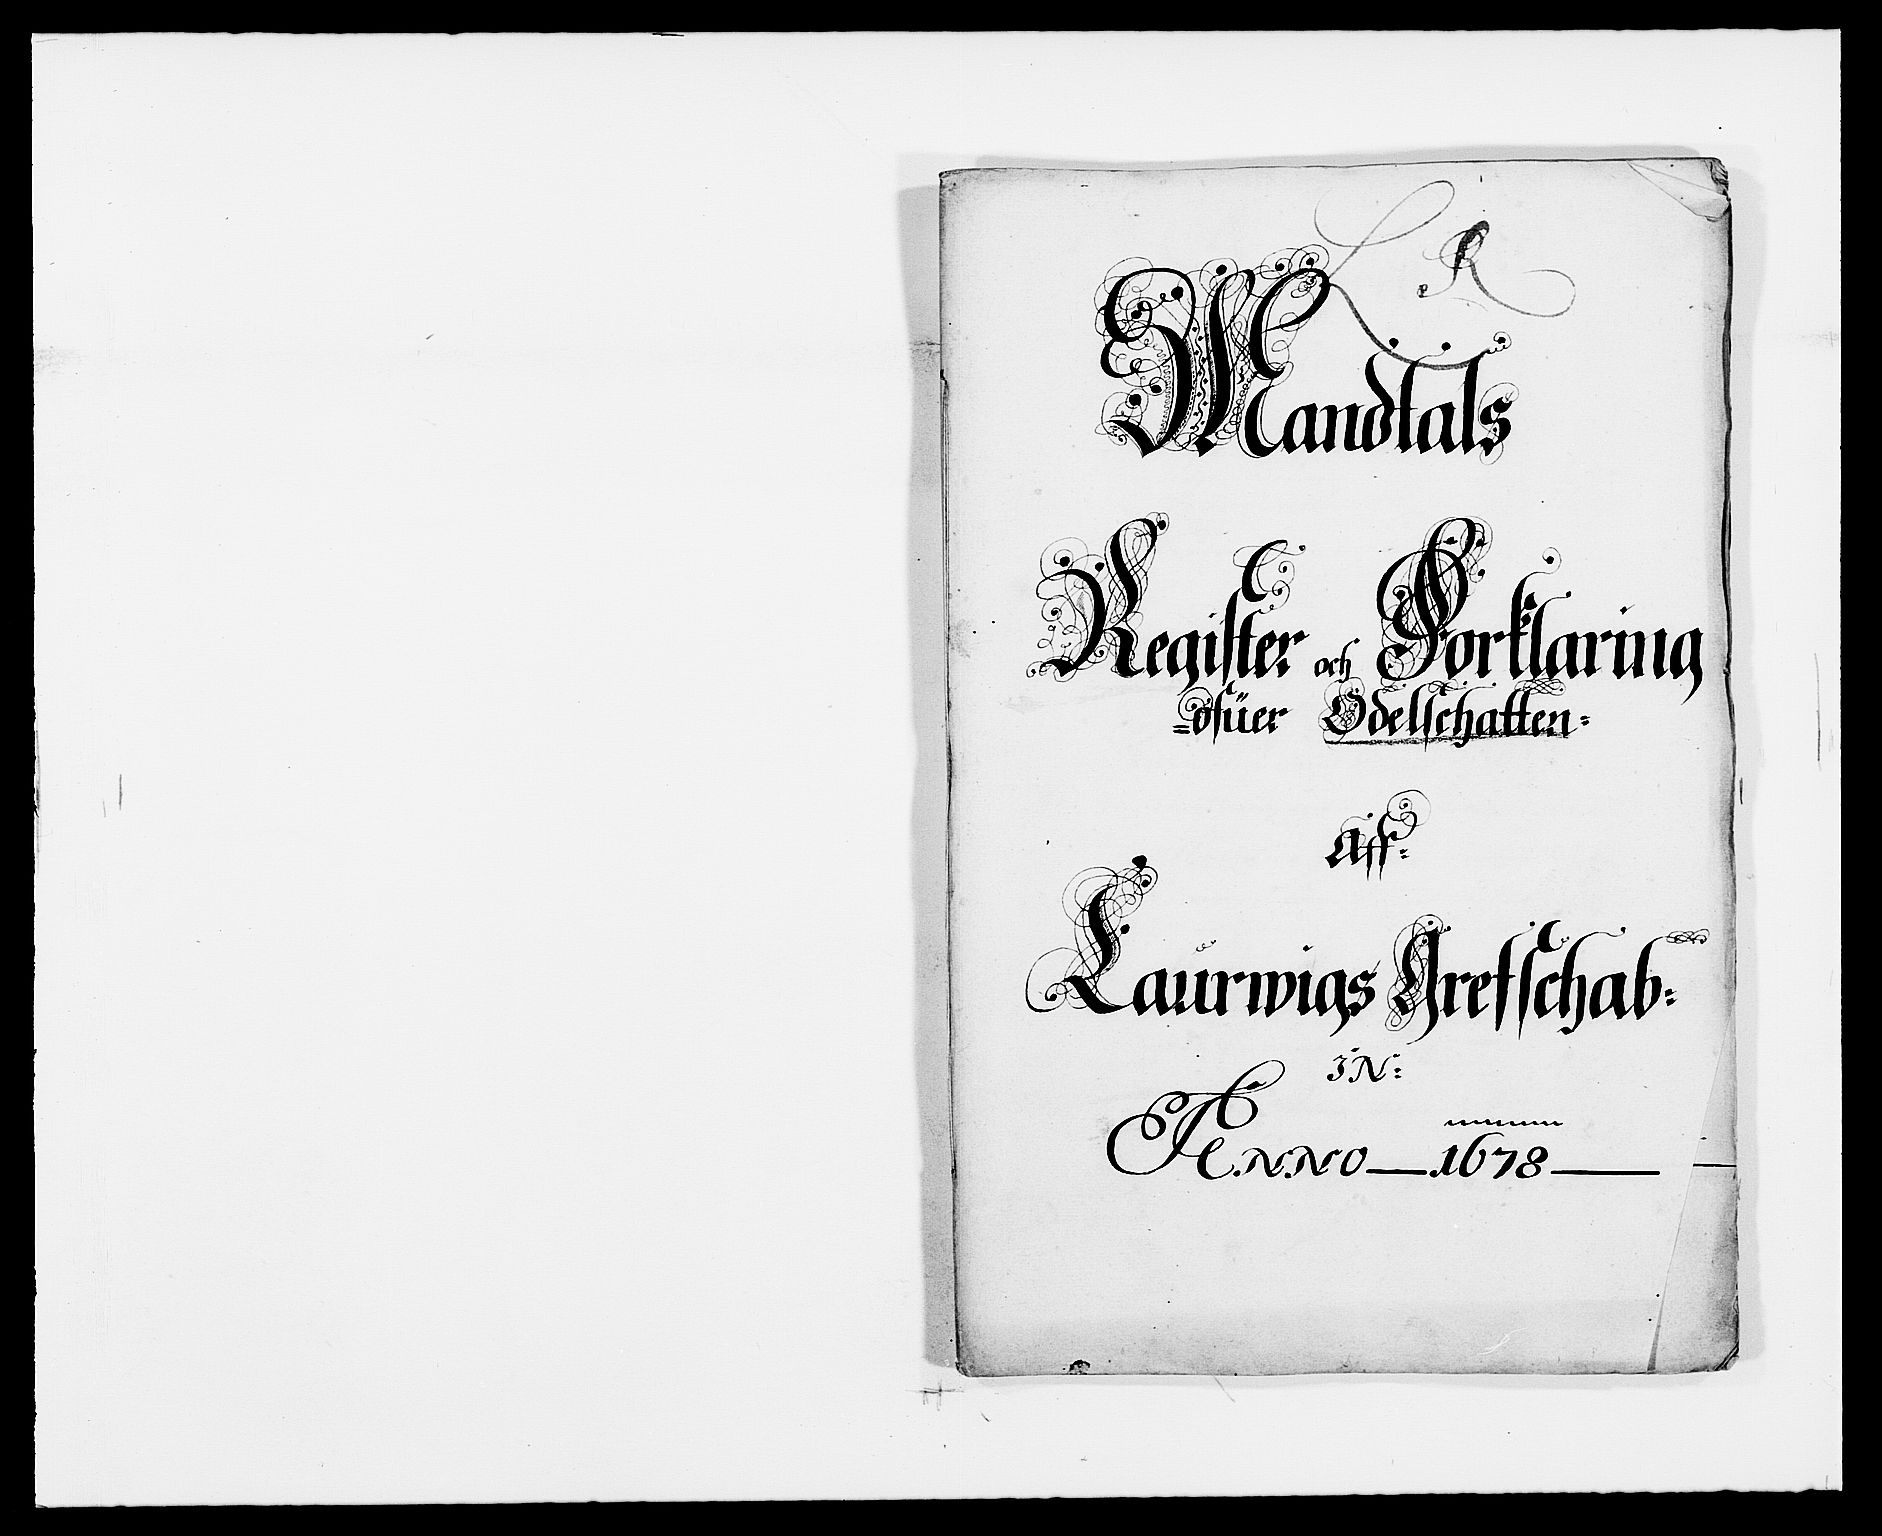 L R
Mandtals
Register och Forklaring
=ofüer Odelschatten=
Aff=
Laurwigs Grefschab=
IN=
ANNO 1678